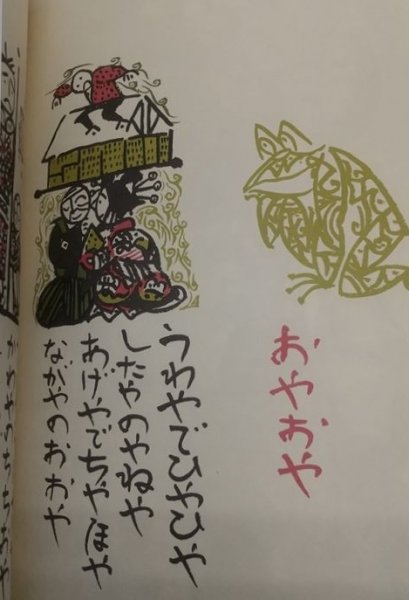 おやおや
うわやでひやひや
したやのやねや
あげやでちやほや
ながやのおおや